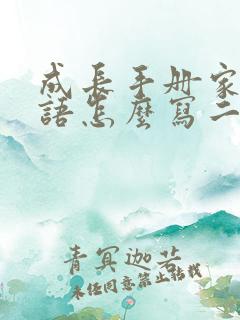 成長手册家
語怎麼寫二
青冥迦若
未经同意禁止转载